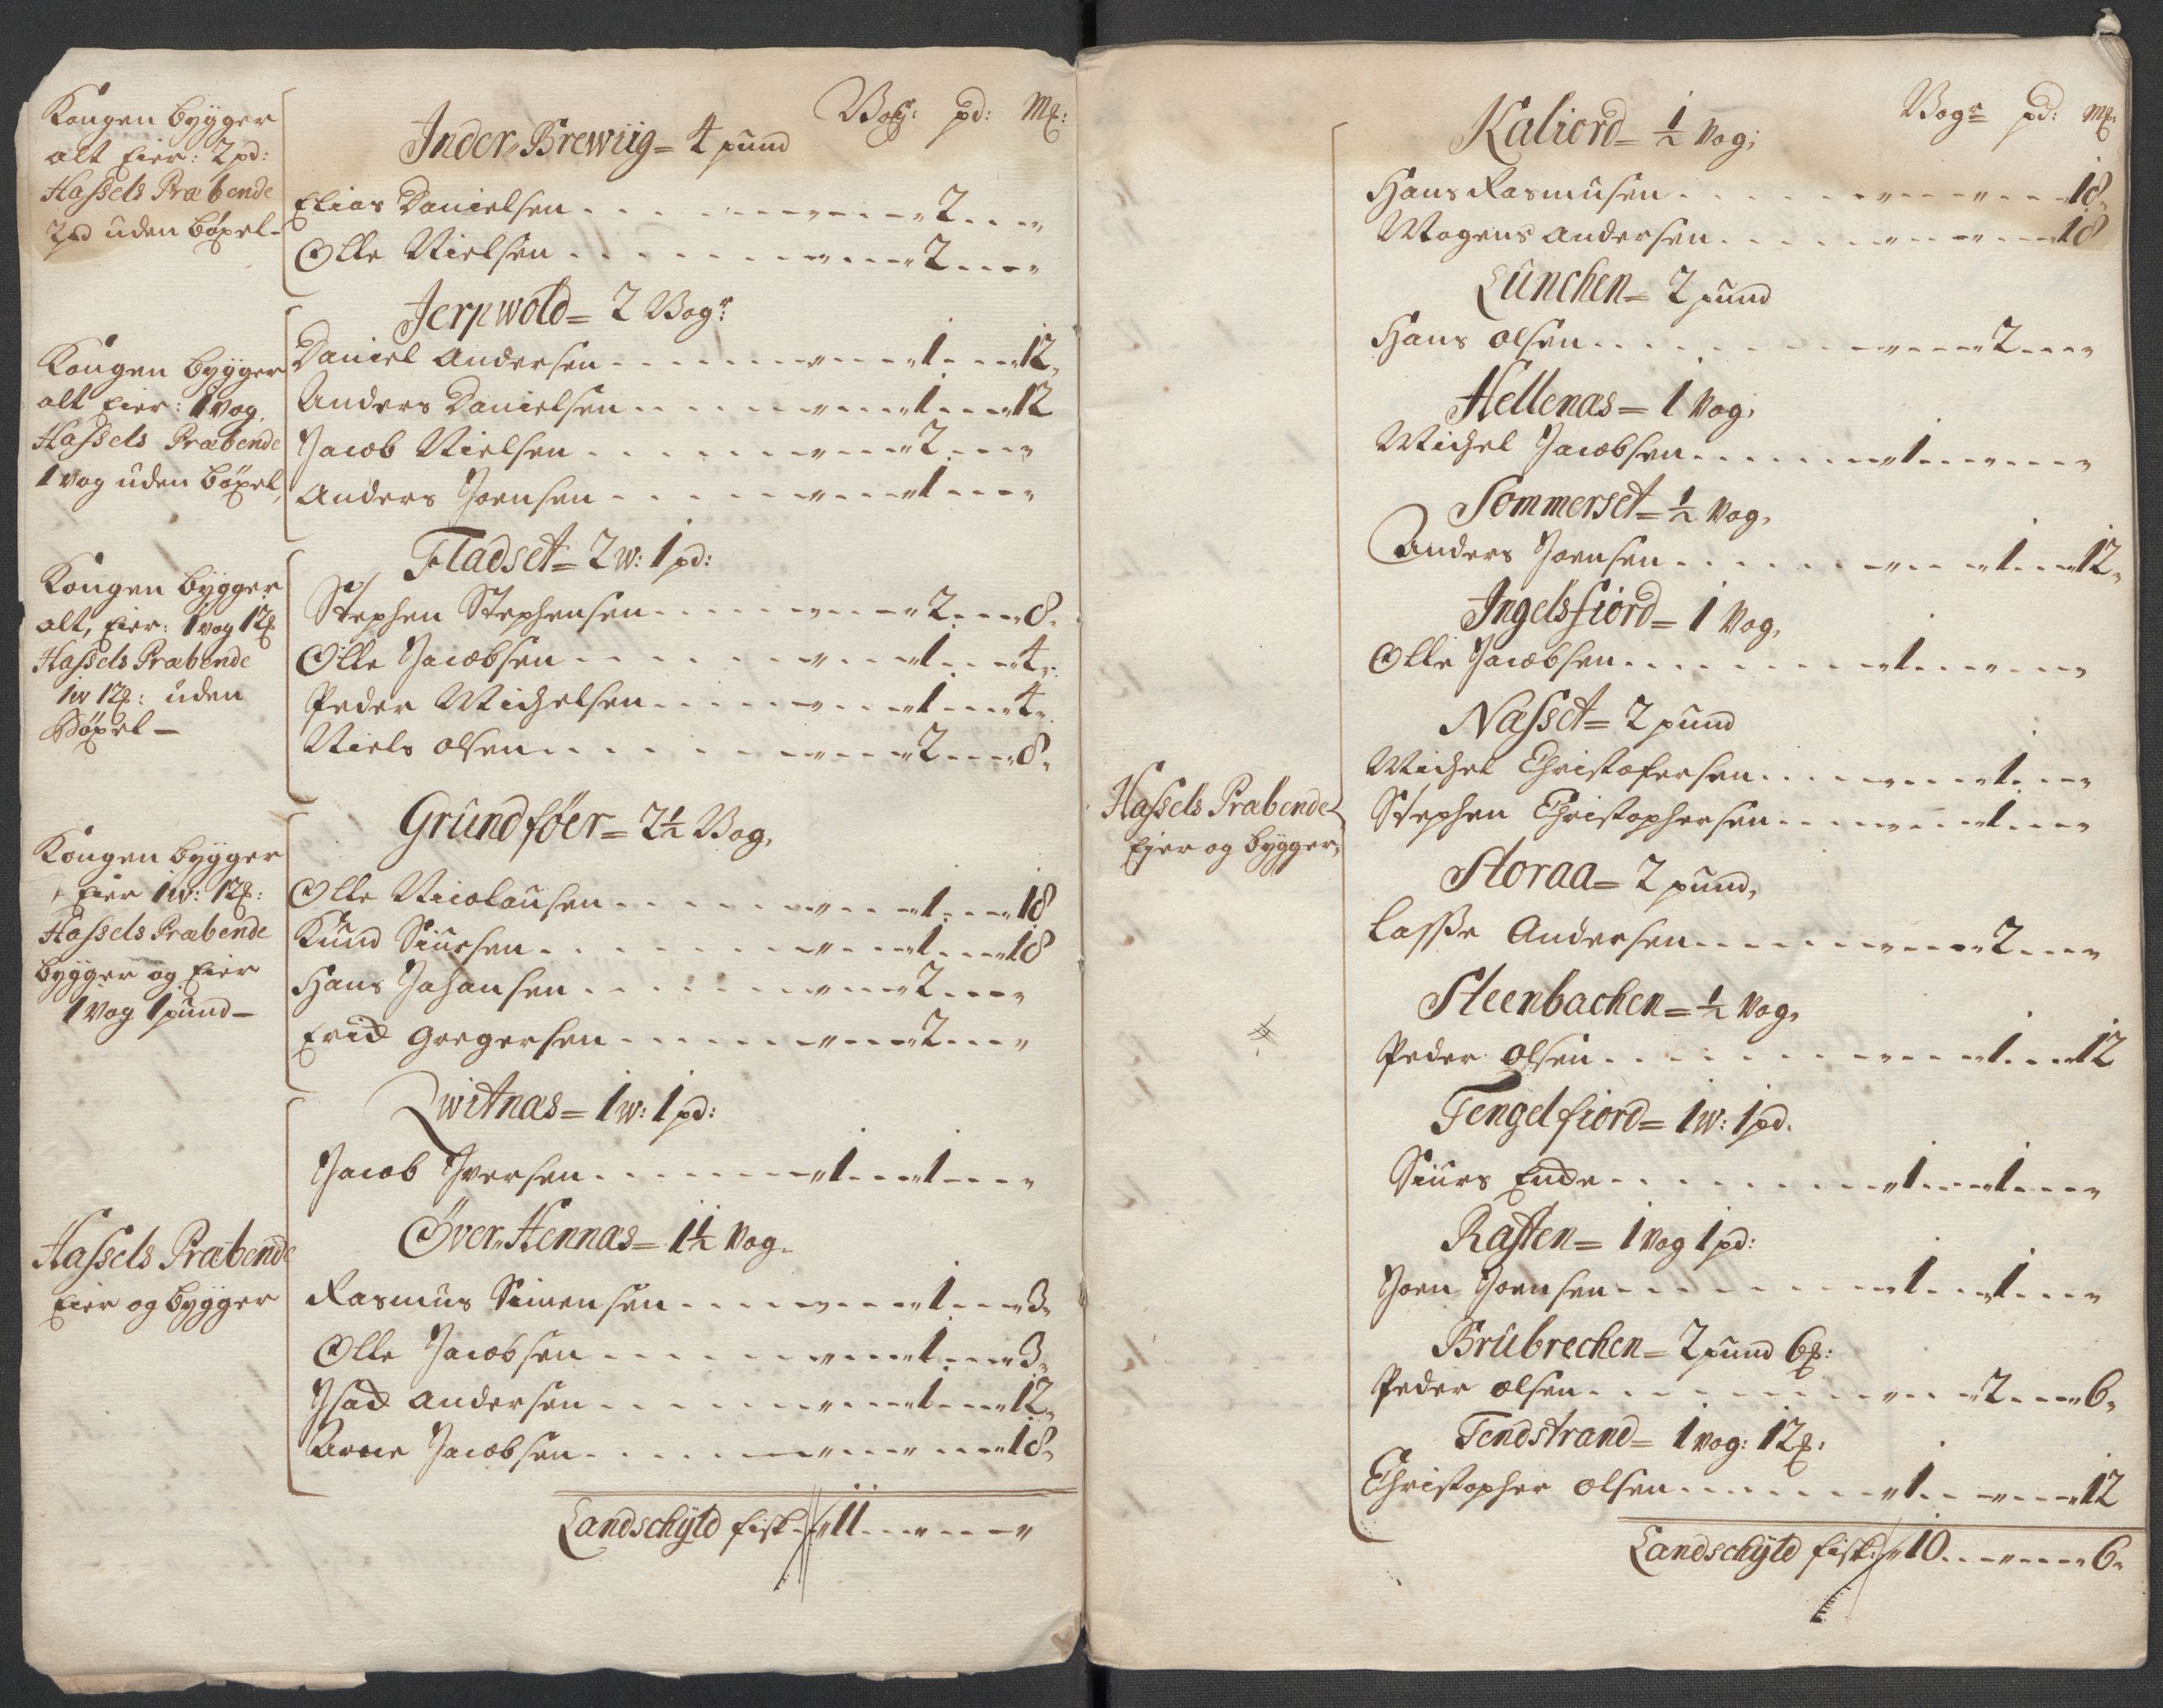 Vogr: pd: mk:
Inder-Brewiig = 4 pund
Kongen bygger
alt Eier: 2 pd:
Hassels Præbende
2 pd uden böxel -
Elias Danielsen - - - " - - - 2 - - - "
Olle Nielsen - - - " - - - 2 - - - "
Jerpwold = 2 Vogr
Kongen bygger
alt Eier: 1 Vog,
Hassels Præbende
1 Vog uden böxel,
Daniel Andersen - - - " - - - 1 - - - 12,
Anders Danielsen - - - " - - - 1 - - - 12
Jacob Nielsen - - - " - - - 2 - - - "
Anders Joensen - - - " - - - 1 - - - "
Fladset = 2 w: 1 pd:
Kongen bygger
alt, Eier: 1 vog 12 mk
Hassels Præbende
1 w 12 mk: uden
Böxel -
Stephen Stephensen - - - " - - - 2 - - - 8,
Olle Jacobsen - - - " - - - 1 - - - 4,
Peder Michelsen - - - " - - - 1 - - - 4,
Niels Olsen - - - " - - - 2 - - - 8,
Grundföer = 2½ Vog,
Kongen bygger
Eier 1 w: 12 mk:
Hassels Præbende
bygger og Eier
1 Vog 1 pund -
Olle Nicolausen - - - " - - - 1 - - - 18
Knud Siursen - - - " - - - 1 - - - 18
Hans Johansen - - - " - - - 2 - - - "
Erich Gregersen - - - " - - - 2 - - - "
Qwitnæs = 1 w: 1 pd:
Jacob Iversen - - - 1 - - - 1 - - - "
Över-Hennæs = 1½ Vog.
Hassels Præbende
Eier og bygger
Rasmus Simensen - - - " - - - 1 - - - 3,
Olle Jacobsen - - - " - - - 1 - - - 3,
Isach Andersen - - - " - - - 1 - - - 12,
Arne Jacobsen - - - " - - - " - - - 18,
Landschyld fisk - 11 - - - " - - - "
Vogr pd: mk:
Kaliord = ½ Vog;
Hans Rasmusen - - - " - - - " - - - 18,
Mogens Andersen - - - " - - - " - - - 18
Lünchen = 2 pund
Hans Olsen - - - " - - - 2 - - - "
Hellenæs = 1 Vog,
Michel Jacobsen - - - 1 - - - " - - - "
Sommerset = ½ Vog,
Anders Joensen - - - " - - - 1 - - - 12,
Ingelsfiord = 1 Vog,
Olle Jacobsen - - - 1 - - - " - - - "
Næsset = 2 pund
Hassels Præbende
Ejer og bygger,
Michel Christofersen - - - " - - - 1 - - - "
Stephen Christophersen - - - " - - - 1 - - - "
Storaa = 2 pund,
Lasse Andersen - - - " - - - 2 - - - "
Steenbachen = ½ Vog,
Peder Olsen - - - " - - - 1 - - - 12
Tengelfiord = 1 w: 1 pd.
Siurs Encke - - - 1 - - - 1 - - - "
Raften = 1 Vog 1 pd:
Joen Joensen - - - 1 - - - 1 - - - "
Brübrechen = 2 pund 6 mk:
Peder Olsen - - - " - - - 2 - - - 6,
Tendstrand = 1 Vog: 12 mk:
Christopher Olsen - - - 1 - - - " - - - 12
Landschyld fisk: 10 - - - " - - - 6,